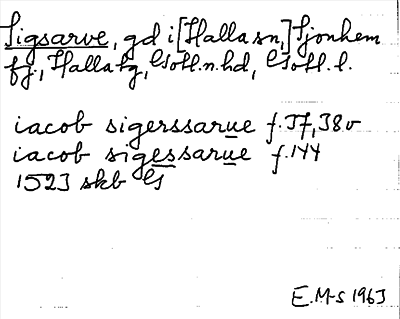 Sigsarve, gd i [Halla sn,] Sjonhem
fg., Halla tg, Gotl. n. hd, Gotl. l.
iacob sigerssarue f. 37, 38v
iacob sigessarue f. 144
1523 skb G
E. M-s 1963